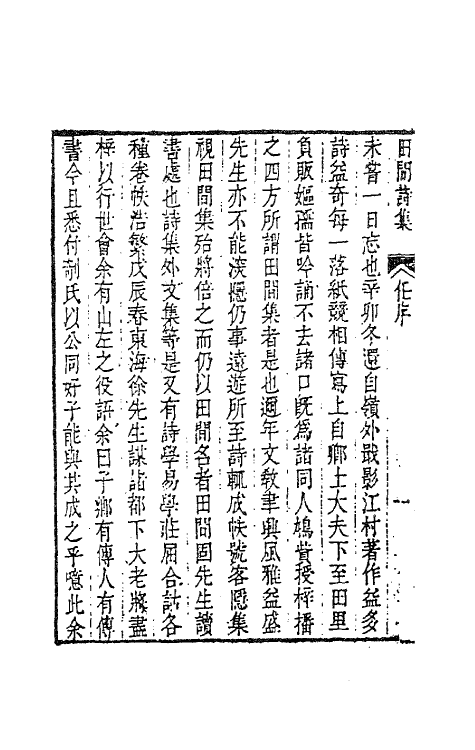 田間詩集 任序 一
未嘗一日忘也辛卯冬還自嶺外戢影江村著作益多
詩益奇每一落紙競相傳寫上自鄉士大夫下至田里
負販嫗孺皆吟誦不去諸口旣為諸同人鳩貲授梓播
之四方所謂田間集者是也邇年文敎聿興風雅益盛
先生亦不能深隱仍事遠遊所至詩輒成帙號客隱集
視田間集殆將倍之而仍以田間名者田間固先生讀
書處也詩集外文集等是又有詩學易學莊屈合詁各
種卷帙浩繁戊辰春東海徐先生謀諸都下大老將盡
梓以行世會余有山左之役語余曰子鄉有傳人有傳
書今且悉付剞氏以公同好子能與其成之乎噫此余